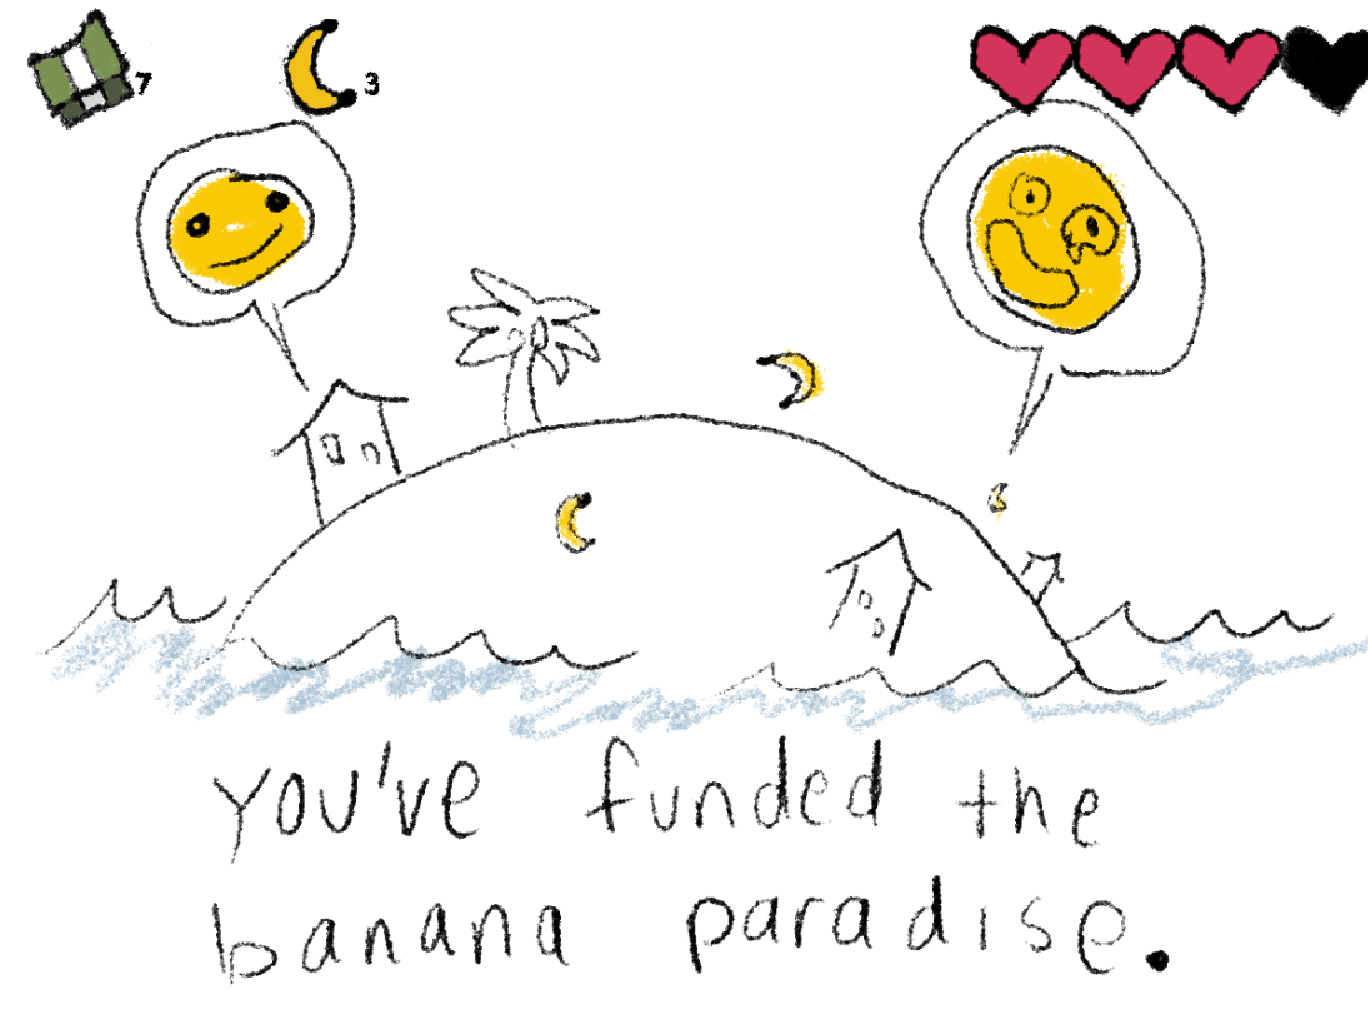 7 3
you've funded the
banana paradise.